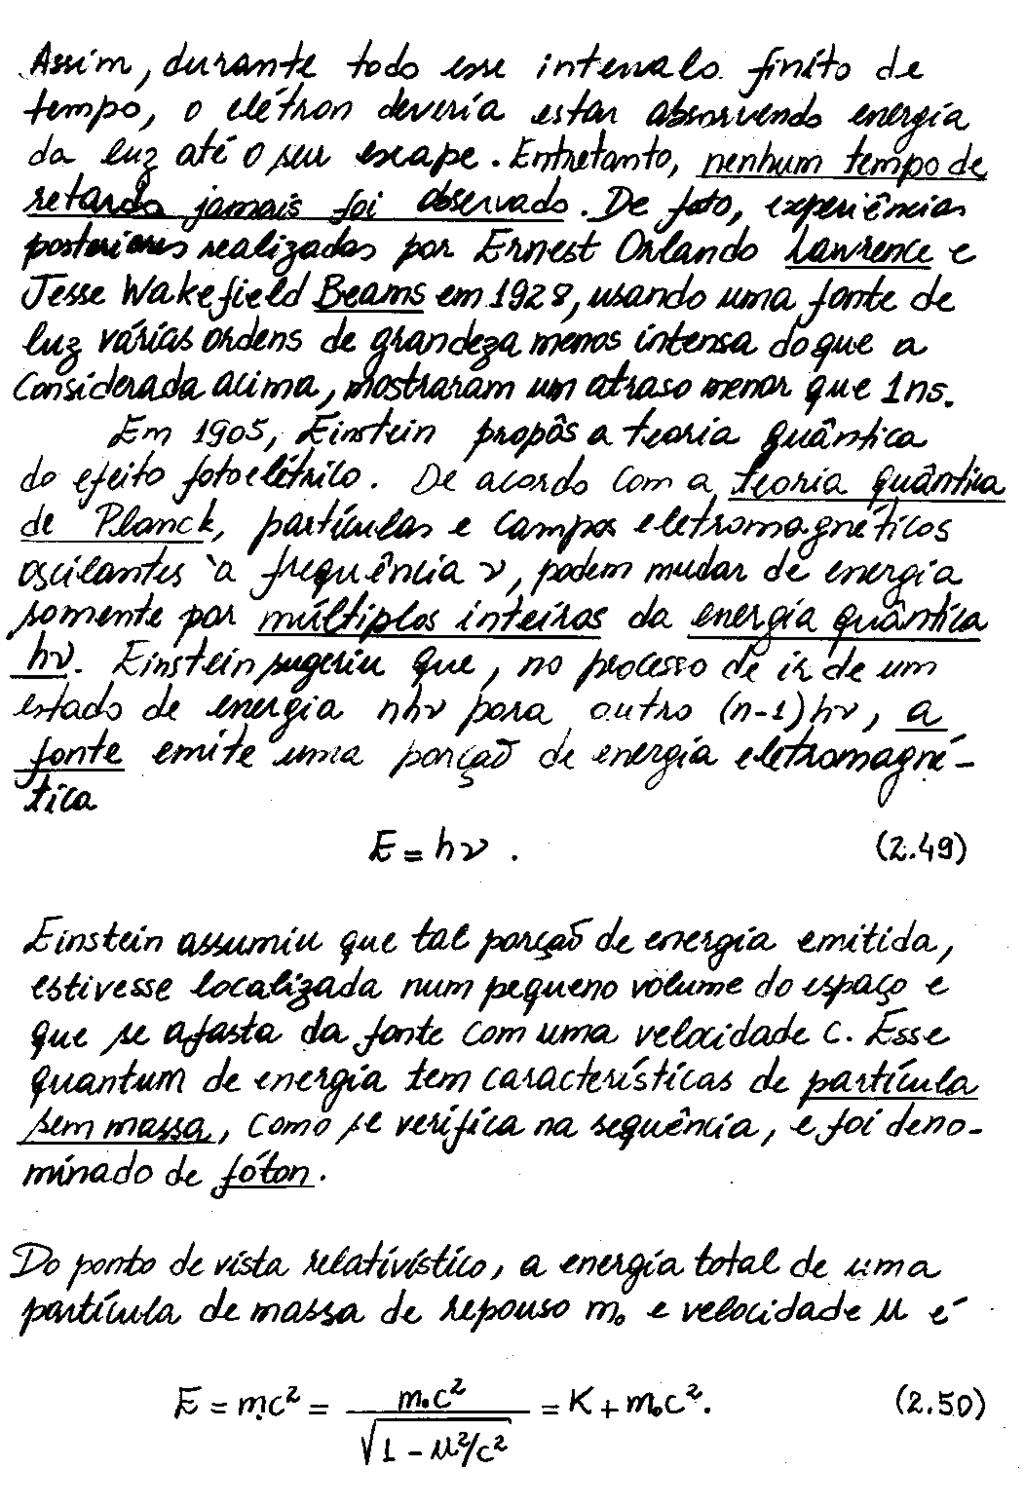 Assim, durante todo esse intervalo finito de
tempo, o elétron deveria estar absorvendo energia
da luz até o seu escape. Entretanto, nenhum tempo de
retardo jamais foi observado. De fato, experiências
posteriores realizadas por Ernest Orlando Lawrence e
Jesse Wakefield Beams em 1928, usando uma fonte de
luz várias ordens de grandeza menos intensa do que a
considerada acima, mostraram um atraso menor que 1ns.
Em 1905, Einstein propôs a teoria quântica
do efeito fotoelétrico. De acordo com a teoria quântica
de Planck, partículas e campos eletromagnéticos
oscilantes à frequência ν, podem mudar de energia
somente por múltiplos inteiros da energia quântica
hν. Einstein sugeriu que, no processo de ir de um
estado de energia nhν para outro (n-1)hν, a
fonte emite uma porção de energia eletromagné-
tica
E = hν . (2.49)
Einstein assumiu que tal porção de energia emitida,
estivesse localizada num pequeno volume do espaço e
que se afasta da fonte com uma velocidade c. Esse
quantum de energia tem características de partícula
sem massa, como se verifica na sequência, e foi deno-
minado de fóton.
Do ponto de vista relativístico, a energia total de uma
partícula de massa de repouso m₀ e velocidade u é
E = mc² = m₀c² / √(1 - u²/c²) = K + m₀c². (2.50)